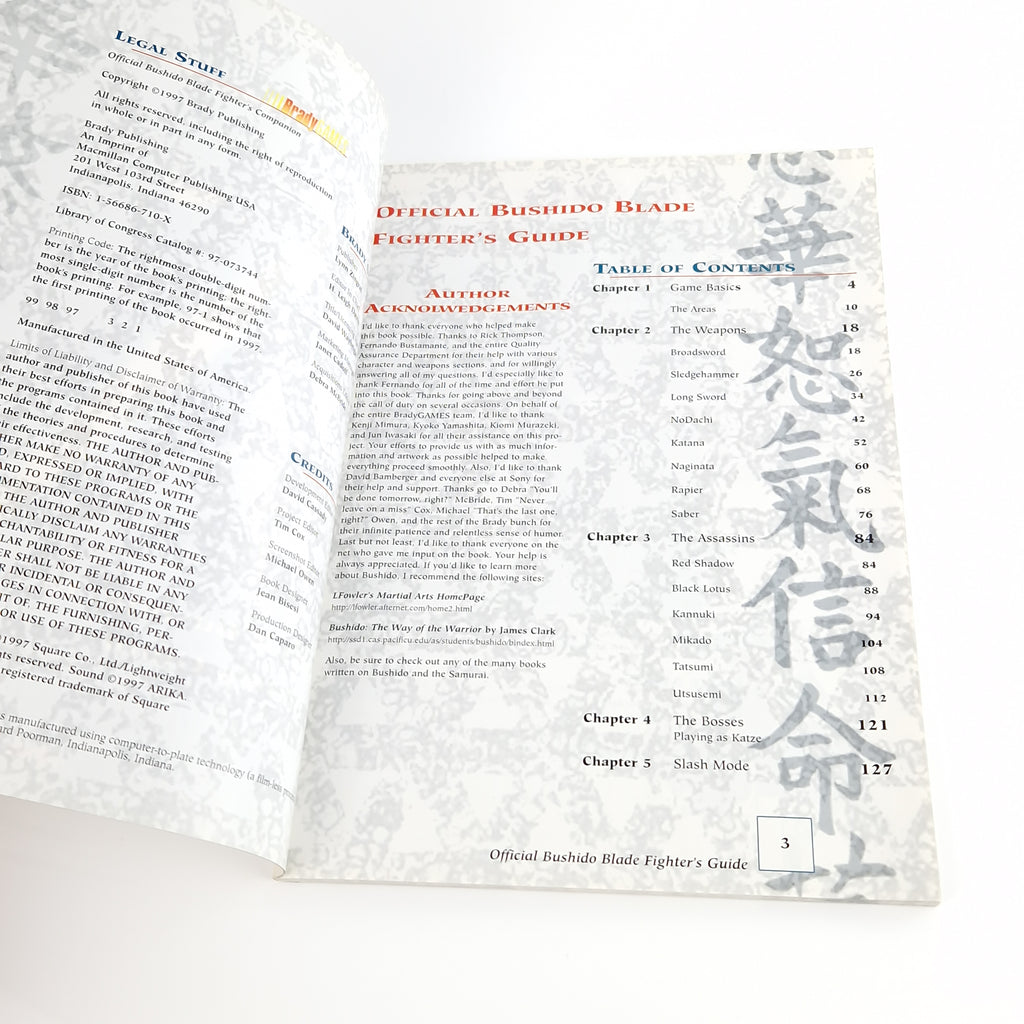 LEGAL STUFF
Official Bushido Blade Fighter's Companion
Copyright ©1997 Brady Publishing
All rights reserved, including the right of reproduction
in whole or in part in any form.
Brady Publishing
An Imprint of
Macmillan Computer Publishing USA
201 West 103rd Street
Indianapolis, Indiana 46290
ISBN: 1-56686-710-X
Library of Congress Catalog #: 97-073744
Printing Code: The rightmost double-digit num-
ber is the year of the book's printing; the right-
most single-digit number is the number of the
book's printing. For example, 97-1 shows that
the first printing of the book occurred in 1997.
99 98 97 3 2 1
Manufactured in the United States of America.
Limits of Liability and Disclaimer of Warranty: The
author and publisher of this book have used
their best efforts in preparing this book and
the programs contained in it. These efforts
include the development, research, and testing
of the theories and procedures to determine
their effectiveness. THE AUTHOR AND PUB-
MAKE NO WARRANTY OF ANY
EXPRESSED OR IMPLIED, WITH
TO THESE PROGRAMS OR THE
CONTAINED IN THIS
THE AUTHOR AND PUBLISHER
DISCLAIM ANY WARRANTIES
OR FITNESS FOR A
PURPOSE. THE AUTHOR AND
SHALL NOT BE LIABLE IN ANY
INCIDENTAL OR CONSEQUEN-
IN CONNECTION WITH, OR
OF, THE FURNISHING, PER-
OR USE OF THESE PROGRAMS.
©1997 Square Co., Ltd./Lightweight
reserved. Sound ©1997 ARIKA.
registered trademark of Square
manufactured using computer-to-plate technology (a film-less
Poorman, Indianapolis, Indiana.
Brady
CREDITS
David Cassady
Project Editor
Tim Cox
Michael Owen
Book Designer
Jean Bisesi
Dan Caparo
OFFICIAL BUSHIDO BLADE
FIGHTER'S GUIDE
AUTHOR
ACKNOLWEDGEMENTS
I'd like to thank everyone who helped make
this book possible. Thanks to Rick Thompson,
Fernando Bustamante, and the entire Quality
Assurance Department for their help with various
character and weapons sections, and for willingly
answering all of my questions. I'd especially like to
thank Fernando for all of the time and effort he put
into this book. Thanks for going above and beyond
the call of duty on several occasions. On behalf of
the entire BradyGAMES team, I'd like to thank
Kenji Mimura, Kyoko Yamashita, Kiomi Murazeki,
and Jun Iwasaki for all their assistance on this pro-
ject. Your efforts to provide us with as much infor-
mation and artwork as possible helped to make
everything proceed smoothly. Also, I'd like to thank
David Bamberger and everyone else at Sony for
their help and support. Thanks go to Debra "You'll
be done tomorrow, right?" McBride, Tim "Never
leave on a miss" Cox, Michael "That's the last one,
right?" Owen, and the rest of the Brady bunch for
their infinite patience and relentless sense of humor.
Last but not least, I'd like to thank everyone on the
net who gave me input on the book. Your help is
always appreciated. If you'd like to learn more
about Bushido, I recommend the following sites:
LFowler's Martial Arts HomePage
http://lfowler.afternet.com/home2.html
Bushido: The Way of the Warrior by James Clark
http://ssd1.cas.pacificu.edu/as/students/bushido/bindex.html
Also, be sure to check out any of the many books
written on Bushido and the Samurai.
TABLE OF CONTENTS
Chapter 1 Game Basics 4
The Areas 10
Chapter 2 The Weapons 18
Broadsword 18
Sledgehammer 26
Long Sword 34
NoDachi 42
Katana 52
Naginata 60
Rapier 68
Saber 76
Chapter 3 The Assassins 84
Red Shadow 84
Black Lotus 88
Kannuki 94
Mikado 104
Tatsumi 108
Utsusemi 112
Chapter 4 The Bosses 121
Playing as Katze
Chapter 5 Slash Mode 127
華
恕
氣
信
命
Official Bushido Blade Fighter's Guide 3